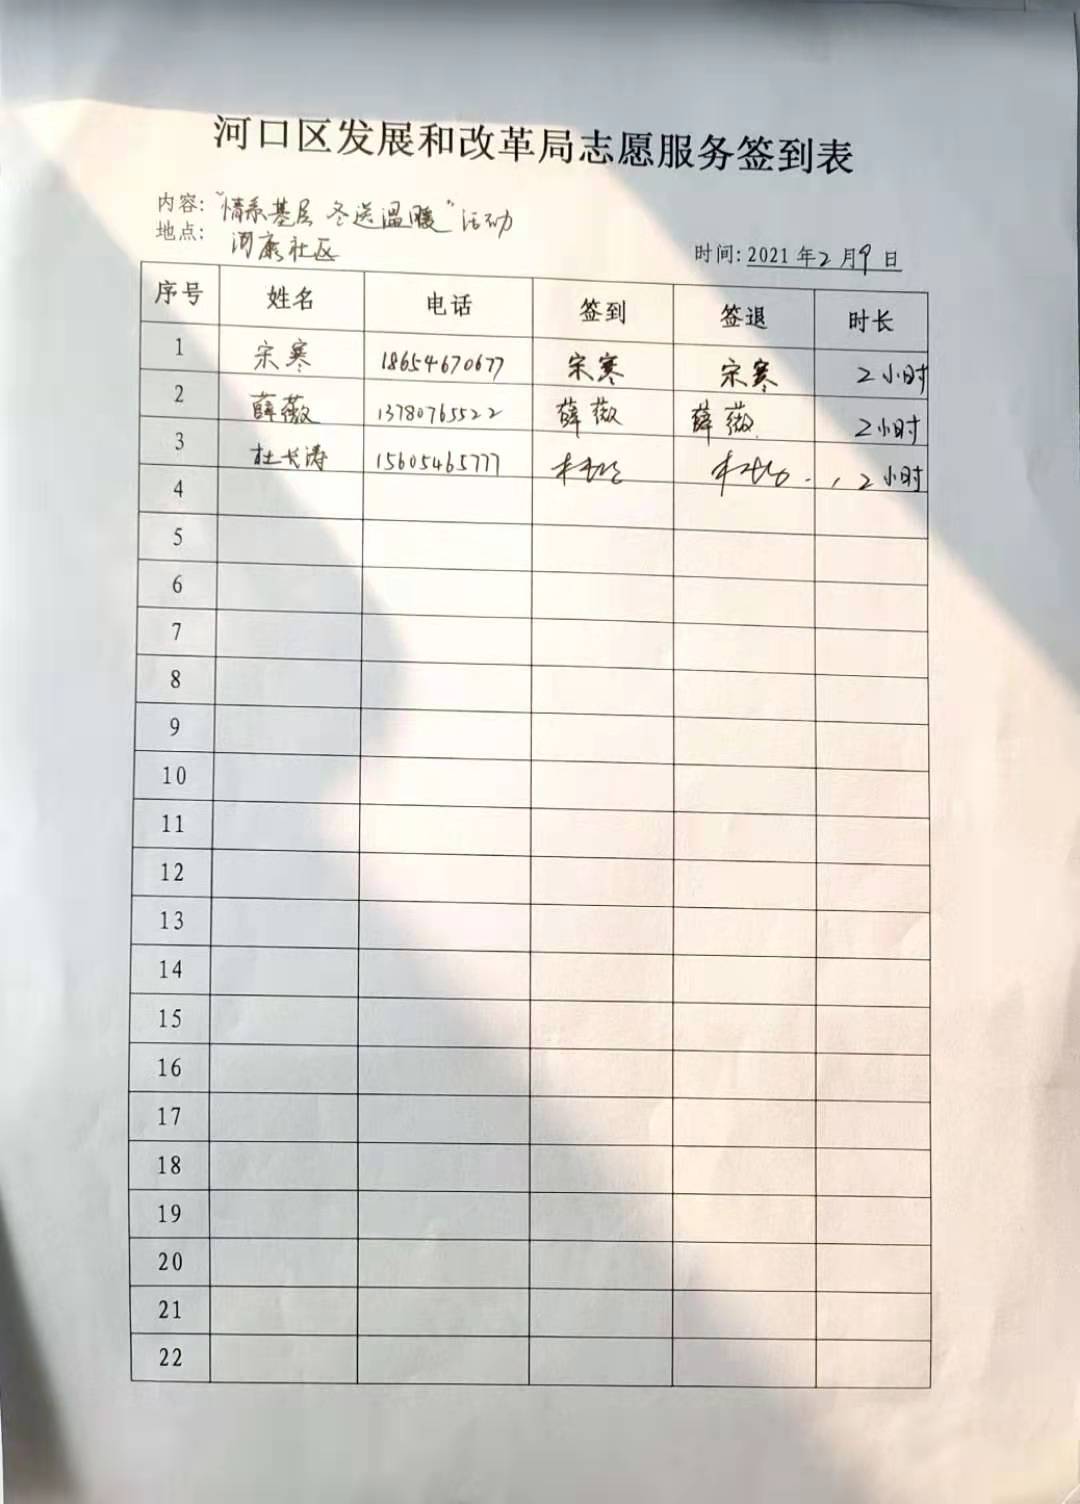 河口区发展和改革局志愿服务签到表
内容: "情系基层 冬送温暖"活动
地点: 河康社区
时间: 2021年2月9日
序号 姓名 电话 签到 签退 时长
1 宗寒 18654670677 宗寒 宗寒 2小时
2 薛薇 13780765522 薛薇 薛薇 2小时
3 杜长涛 15605465777 2小时
4
5
6
7
8
9
10
11
12
13
14
15
16
17
18
19
20
21
22